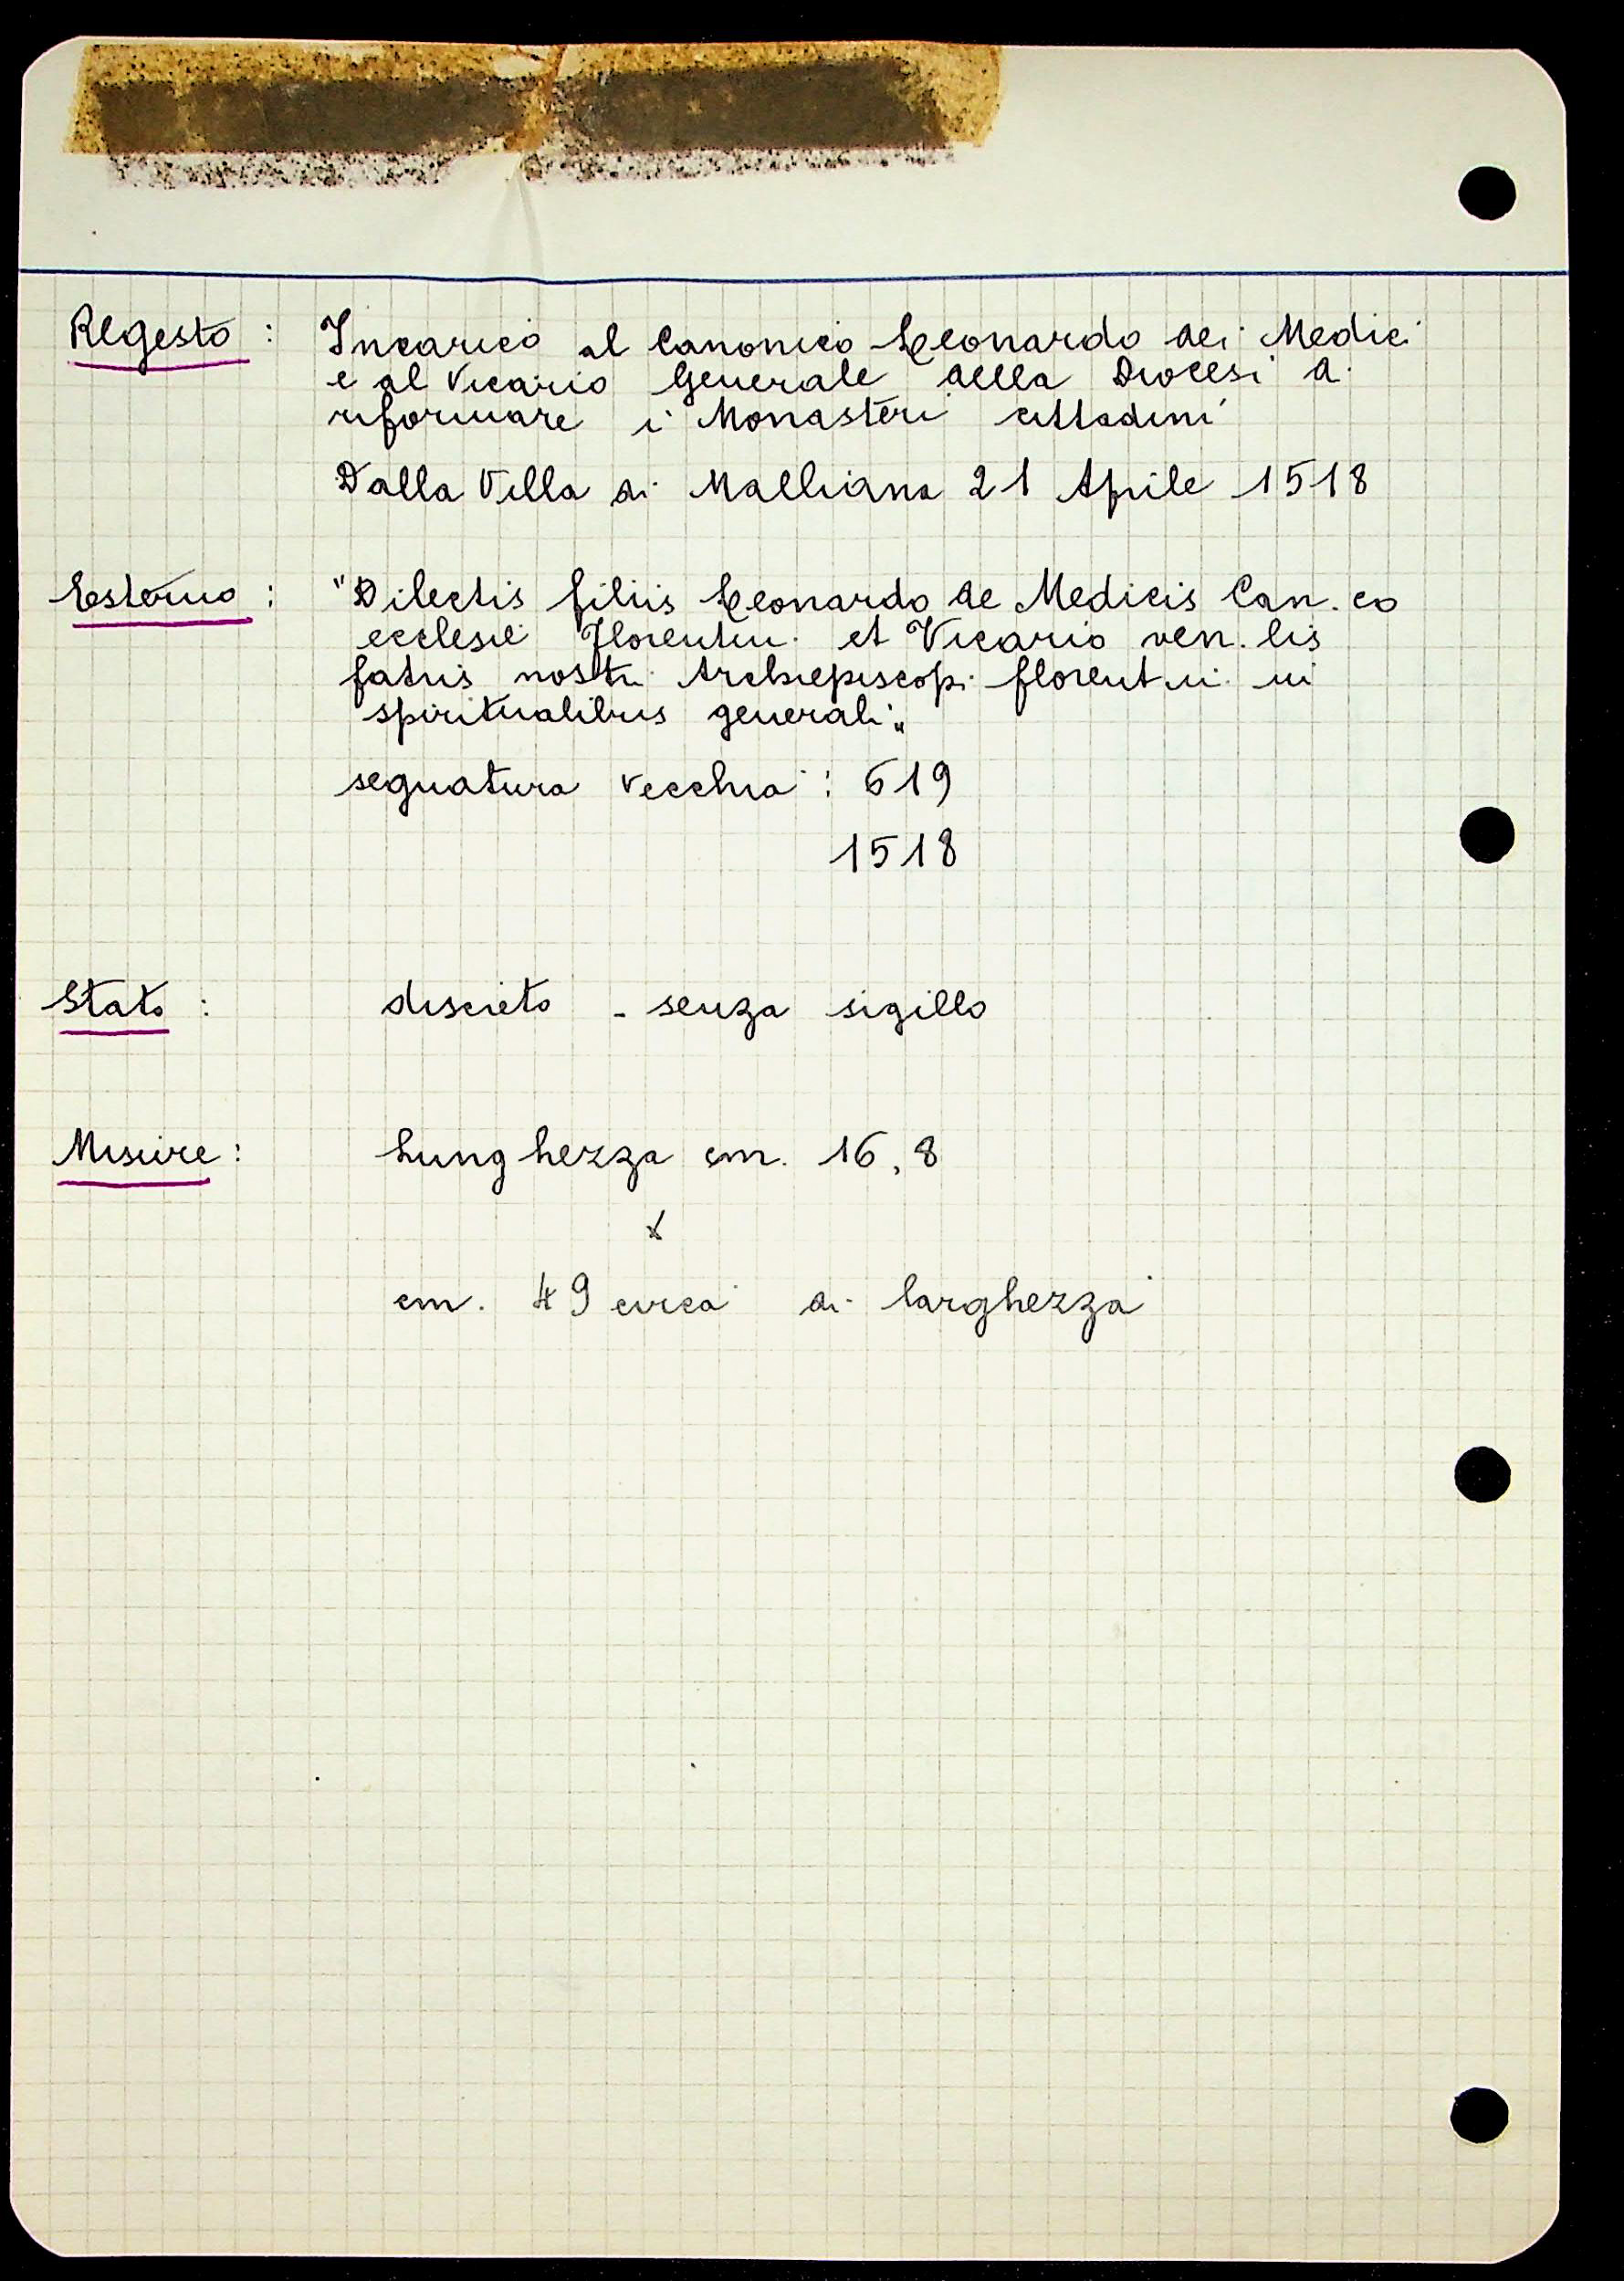 Regesto : Incarico al Canonico Leonardo dei Medici
e al Vicario Generale della Diocesi di
riformare i Monasteri cittadini
Dalla Villa di Malliana 21 Aprile 1518
Esterno : "Dilectis filiis Leonardo de Medicis Can.co
ecclesie Florentin. et Vicario ven.lis
fatris nostri Archiepiscopi florentini in
spiritualibus generali"
segnatura vecchia : 619
1518
Stato : discreto - senza sigillo
Misure : Lunghezza cm. 16,8
x
cm. 49 circa di larghezza